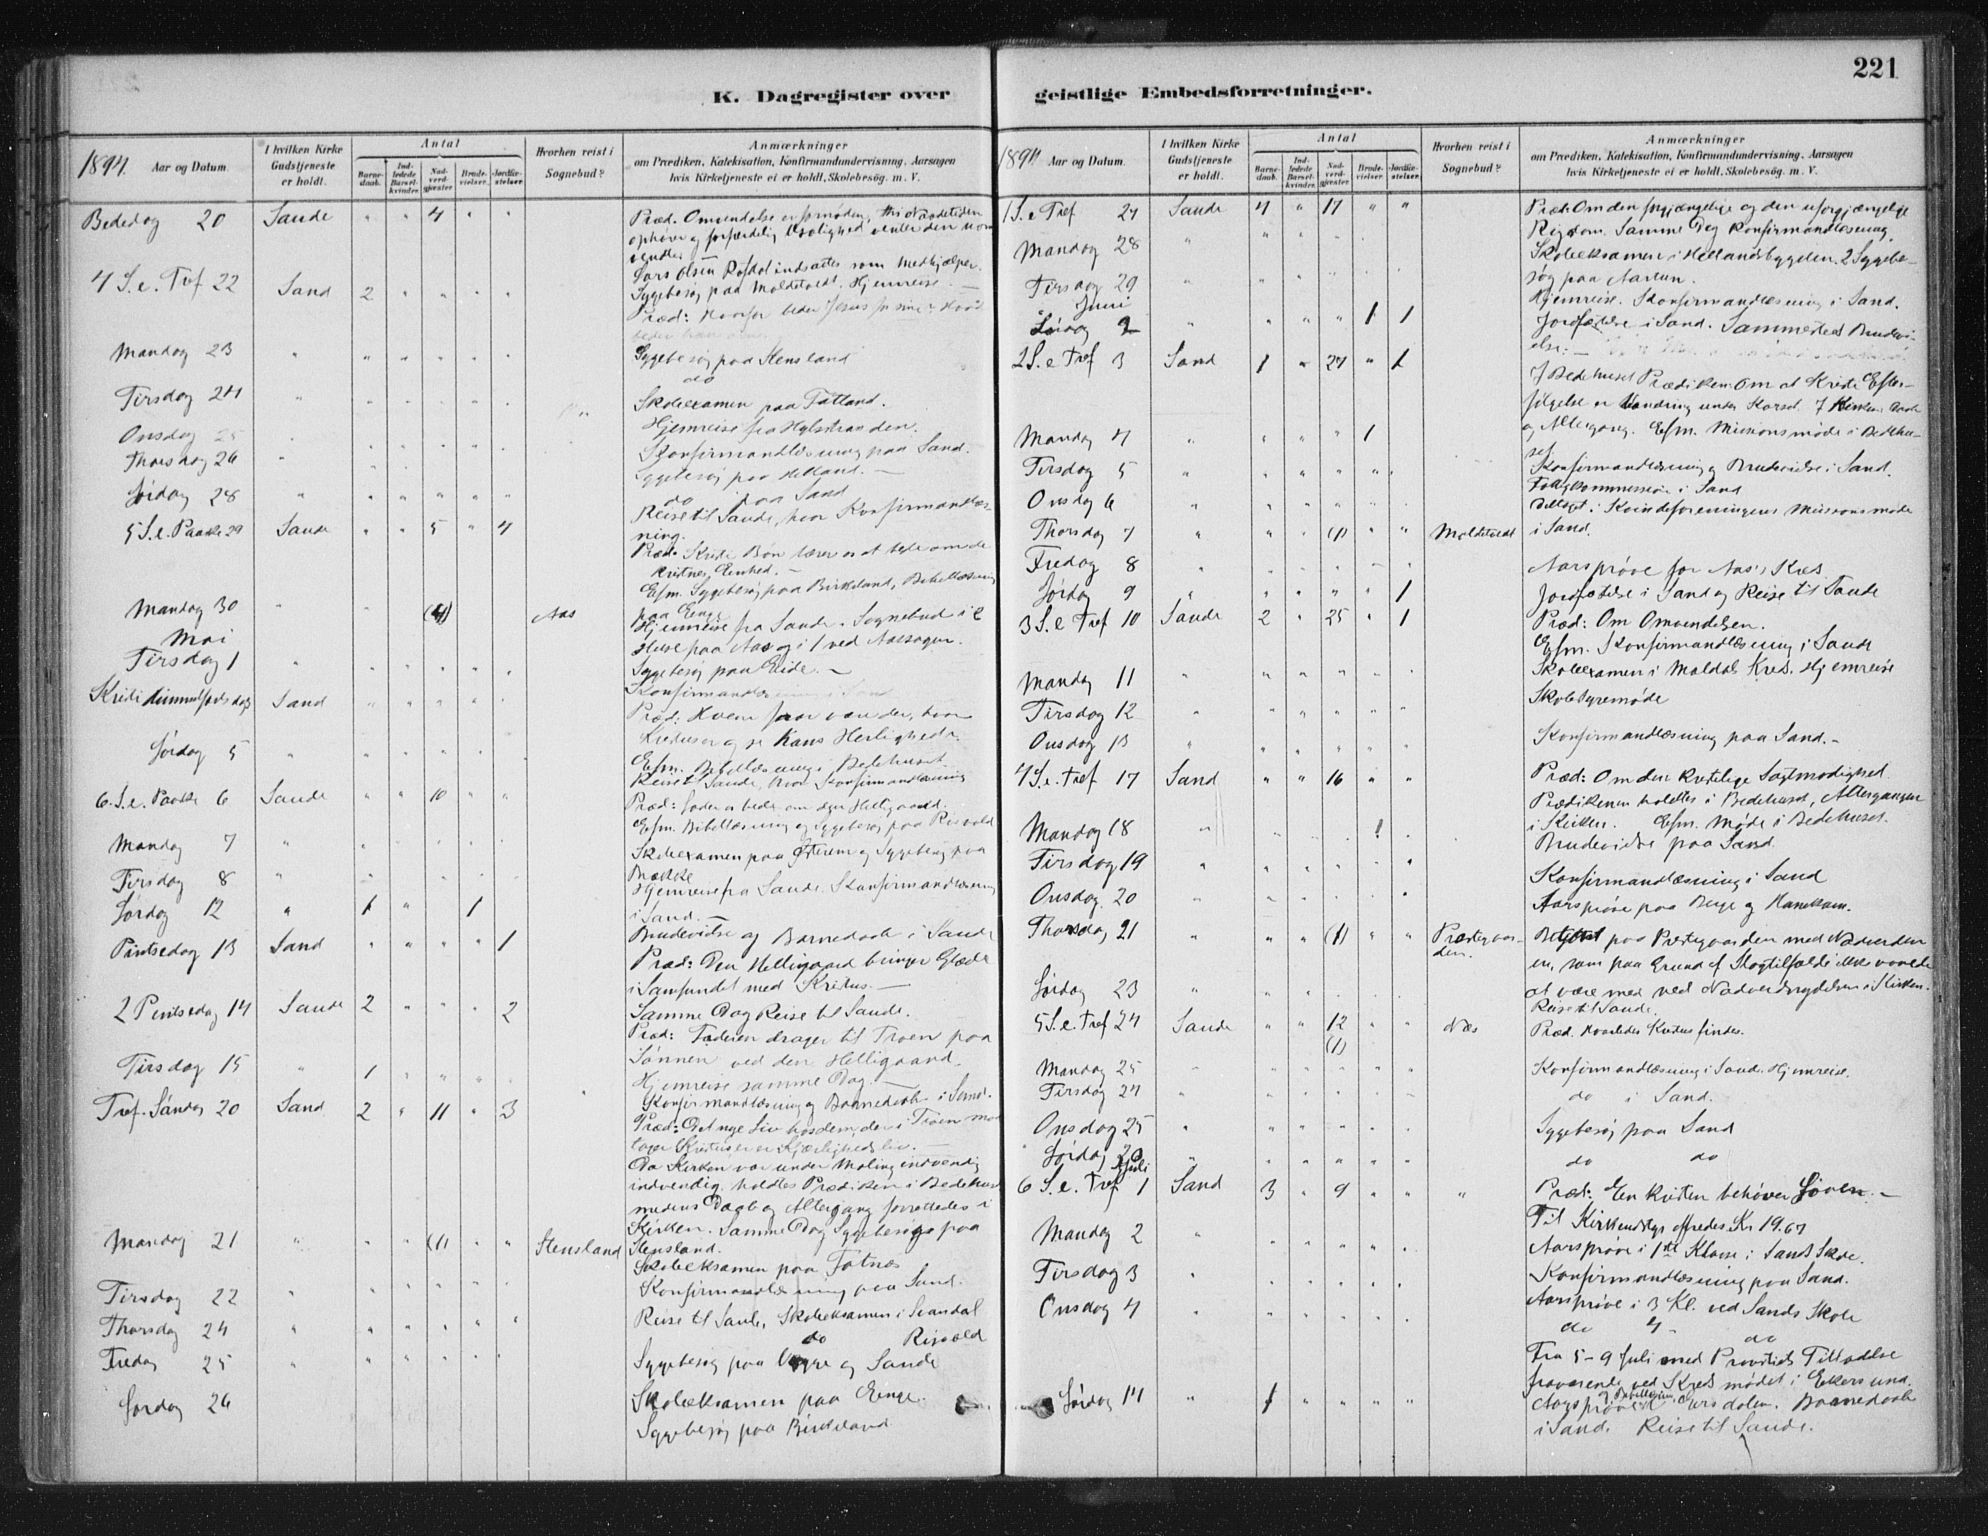 221
K. Dagregister over geistlige Embedsforretninger.
1894. Aar og Datum
I hvilken Kirke Gudstjeneste er holdt.
Antal
Barnedaab. Indledede Barselkvinder. Nadverdgjester Brudevielser. Jordfæstelser
Hvorhen reist i Sognebud?
Anmærkninger
om Prædiken, Katekisation, Konfirmandundervisning, Aarsagen
hvis Kirketjeneste ei er holdt, Skolebesøg. m. V.
Bededag 20 Sande " " 4 " " Præd. Omvendelse er fornøden, thi Naadetiden
ophører og forfærdelig Usalighed venter den uom
vendte.
4 S. e. Tref 22 Sand 2 " " " " Lars Olsen indsattes som Medhjælper.
Sygebesøg paa Moldetvedt. Hjemreise. —
Præd: Hvorfor beder Jesus
Mandag 23 " Sygebesøg paa Stensland
do
Tirsdag 24 " Skolexamen paa Fatland.
Onsdag 25 Hjemreise fra Hylsstranden.
Thorsdag 26 " Konfirmandlæsning paa Sand.
Sygebesøg paa Helland. —
Lørdag 28 " do paa Sand
Reise til Sande, hvor Konfirmandlæs
5 S. e. Paaske 29 Sande " " 5 " 4 ning.
Præd. Kristi Bøn lærer os at bede om de
kristnes Enhed. —
Efm. Sygebesøg paa Birkeland, Bibellæsning
paa Einge
Mandag 30 " (4) Aas Hjemreise fra Sande. Sognebud i 2
Huse paa Aas og i 1 ved Aalsagen.
Mai
Tirsdag 1 " Sygebesøg paa Eide. —
Konfirmandlæsning i Sand
Kristi Himmelfartsdag Sand Præd: Hvem faar være der, hvor
Kristus er og se hans Herlighed.
Efm. Bibellæsning i Bedehuset.
Lørdag 5 " Reise til Sande, hvor Konfirmandlæsning
6. S. e. Paaske 6 Sande " " 10 " " Præd: Lader os bede om den Helligaand.
Efm. Bibellæsning og Sygebesøg paa Risvold
Mandag 7 " Skolexamen paa Østerem og Sygebesøg paa
Mække
Tirsdag 8 " Hjemreise fra Sande. Konfirmandlæsning
i Sand. —
Lørdag 12 " 1 " 1 Brudevielse og Barnedaab i Sande
Pintsedag 13 Sand " " " " 1 Præd: Den Helligaand bringer Glæde
i Samfundet med Kristus. —
Samme Dag Reise til Sande.
2 Pintsedag 14 Sande 2 " " " 2 Præd: Faderen drager til Troen paa
Sønnen ved den Helligaand.
Hjemreise samme Dag —
Tirsdag 15 " 1 " " " Konfirmandlæsning og Barnedaab i Sand.
Tref. Søndag 20 Sand 2 " 11 " 3 Præd: Det nye Liv hos dem, der i Troen mod
tager Kristus er et Kjærlighedsliv. —
Da Kirken var under Maling indvendig
indvendig, holdtes Prædiken i Bedehuset
medens Daab og Altergang forrettedes i
Kirken. Samme Dag Sygebesøg paa
Stensland.
Mandag 21 " " " (1) " " Stensland Skoleeksamen paa Fatnæs
Tirsdag 22 " Konfirmandlæsning paa Sand.
Thorsdag 24 " Reise til Sande, Skoleeksamen i Svandal
do Risvold
Fredag 25 " Sygebesøg paa og Sande
Lørdag 26 " Skoleeksamen paa Einge.
Sygebesøg paa Birkeland
1894 Aar og Datum.
I hvilken Kirke Gudstjeneste er holdt.
Antal
Barnedaab. Indledede Barselkvinder. Nadverdgjester Brudevielser. Jordfæstelser.
Hvorhen reist i Sognebud?
Anmærkninger
om Prædiken, Katekisation, Konfirmandundervisning. Aarsagen
hvis Kirketjeneste ei er holdt, Skolebesøg. m. V.
1 S. e Tref 27 Sande 4 " 17 " " Præd: Om den forgjængelige og den uforgjængelige
Rigdom. Samme Dag Konfirmandlæsning.
Mandag 28 " Skoleeksamen i Hellandsbygden. 2 Sygebe-
søg paa
Tirsdag 29 " Hjemreise. Konfirmandlæsning i Sand.
Juni
Lørdag 2 " " " " 1 1 Jordfæstelse i Sand. Sammesteds Brudevi-
else. —
2 S. e Tref 3 Sand 1 " 24 " 1 I Bedehuset Prædiken: Om at Kristi Efter-
følgelse er Vandring under Korset. I Kirken Daab
og Altergang. Efm. Missionsmøde i Bedehu-
set
Mandag 4 " " " " 1 Konfirmandlæsning og Brudevielse i Sand.
Tirsdag 5 " kommission i Sand
Onsdag 6 " Deltaget i Kvindeforeningens Missionsmøde
i Sand.
Thorsdag 7 " " " (1) " " Moldetvedt
Fredag 8 " Aarsprøve for Aas's Kres
Lørdag 9 " " " " " 1 Jordfæstelse i Sand og Reise til Sande
3 S. e Tref 10 Sande 2 " 25 " 1 Præd: Om Omvendelsen.
Efm. Konfirmandlæsning i Sande
Mandag 11 " Skolexamen i Maldal Kres. Hjemreise
Tirsdag 12 " Skolestyremøde
Onsdag 13 " Konfirmandlæsning paa Sand. —
4 S. e. Tref 17 Sand " " 16 " " Præd: Om den kristelige Sagtmodighed.
Prædikenen holdtes i Bedehuset, Altergangen
i Kirken. Efm. Møde i Bedehuset.
Mandag 18 " " " " 1 Brudevielse paa Sand.
Tirsdag 19 " Konfirmandlæsning i Sand
Onsdag 20 " Aarsprøve paa Berge og Hanekam.
Thorsdag 21 " " " (1) " " Præstegaarden. Betjent paa Præstegaarden med Nadverden
en, som paa Grund af Slagtilfælde ikke vovede
at være med ved Nadverdnydelsen i Kirken.
Lørdag 23 Reise til Sande.
5 S. e. Tref 24 Sande " " 12 (1) " " Næs Præd. Hvorledes Kristus findes.
Mandag 25 " Konfirmandlæsning i Sande. Hjemreise.
Tirsdag 24 " do i Sand.
Onsdag 25 " Sygebesøg paa Sand
Lørdag " do do
Juli
6 S. e. Tref 1 Sand 3 " 9 " " " Præd: En kristen behøver Loven. —
Til Kirkens offredes Kr 19.67
Mandag 2 " Aarsprøve i 1ste Klasse i Sands Skole.
Tirsdag 3 " Konfirmandlæsning paa Sand.
Onsdag 4 " Aarsprøve i 3 Kl. ved Sands Skole
do 4 - do
Fra 5-9 Juli med Provstens Tilladelse
fraværende ved Kredsmødet i Ekersund.
Lørdag 14 " 1 " " " " Aarsprøve og Bibellæsn. i dalen. Barnedaab
i Sand. Reise til Sande.